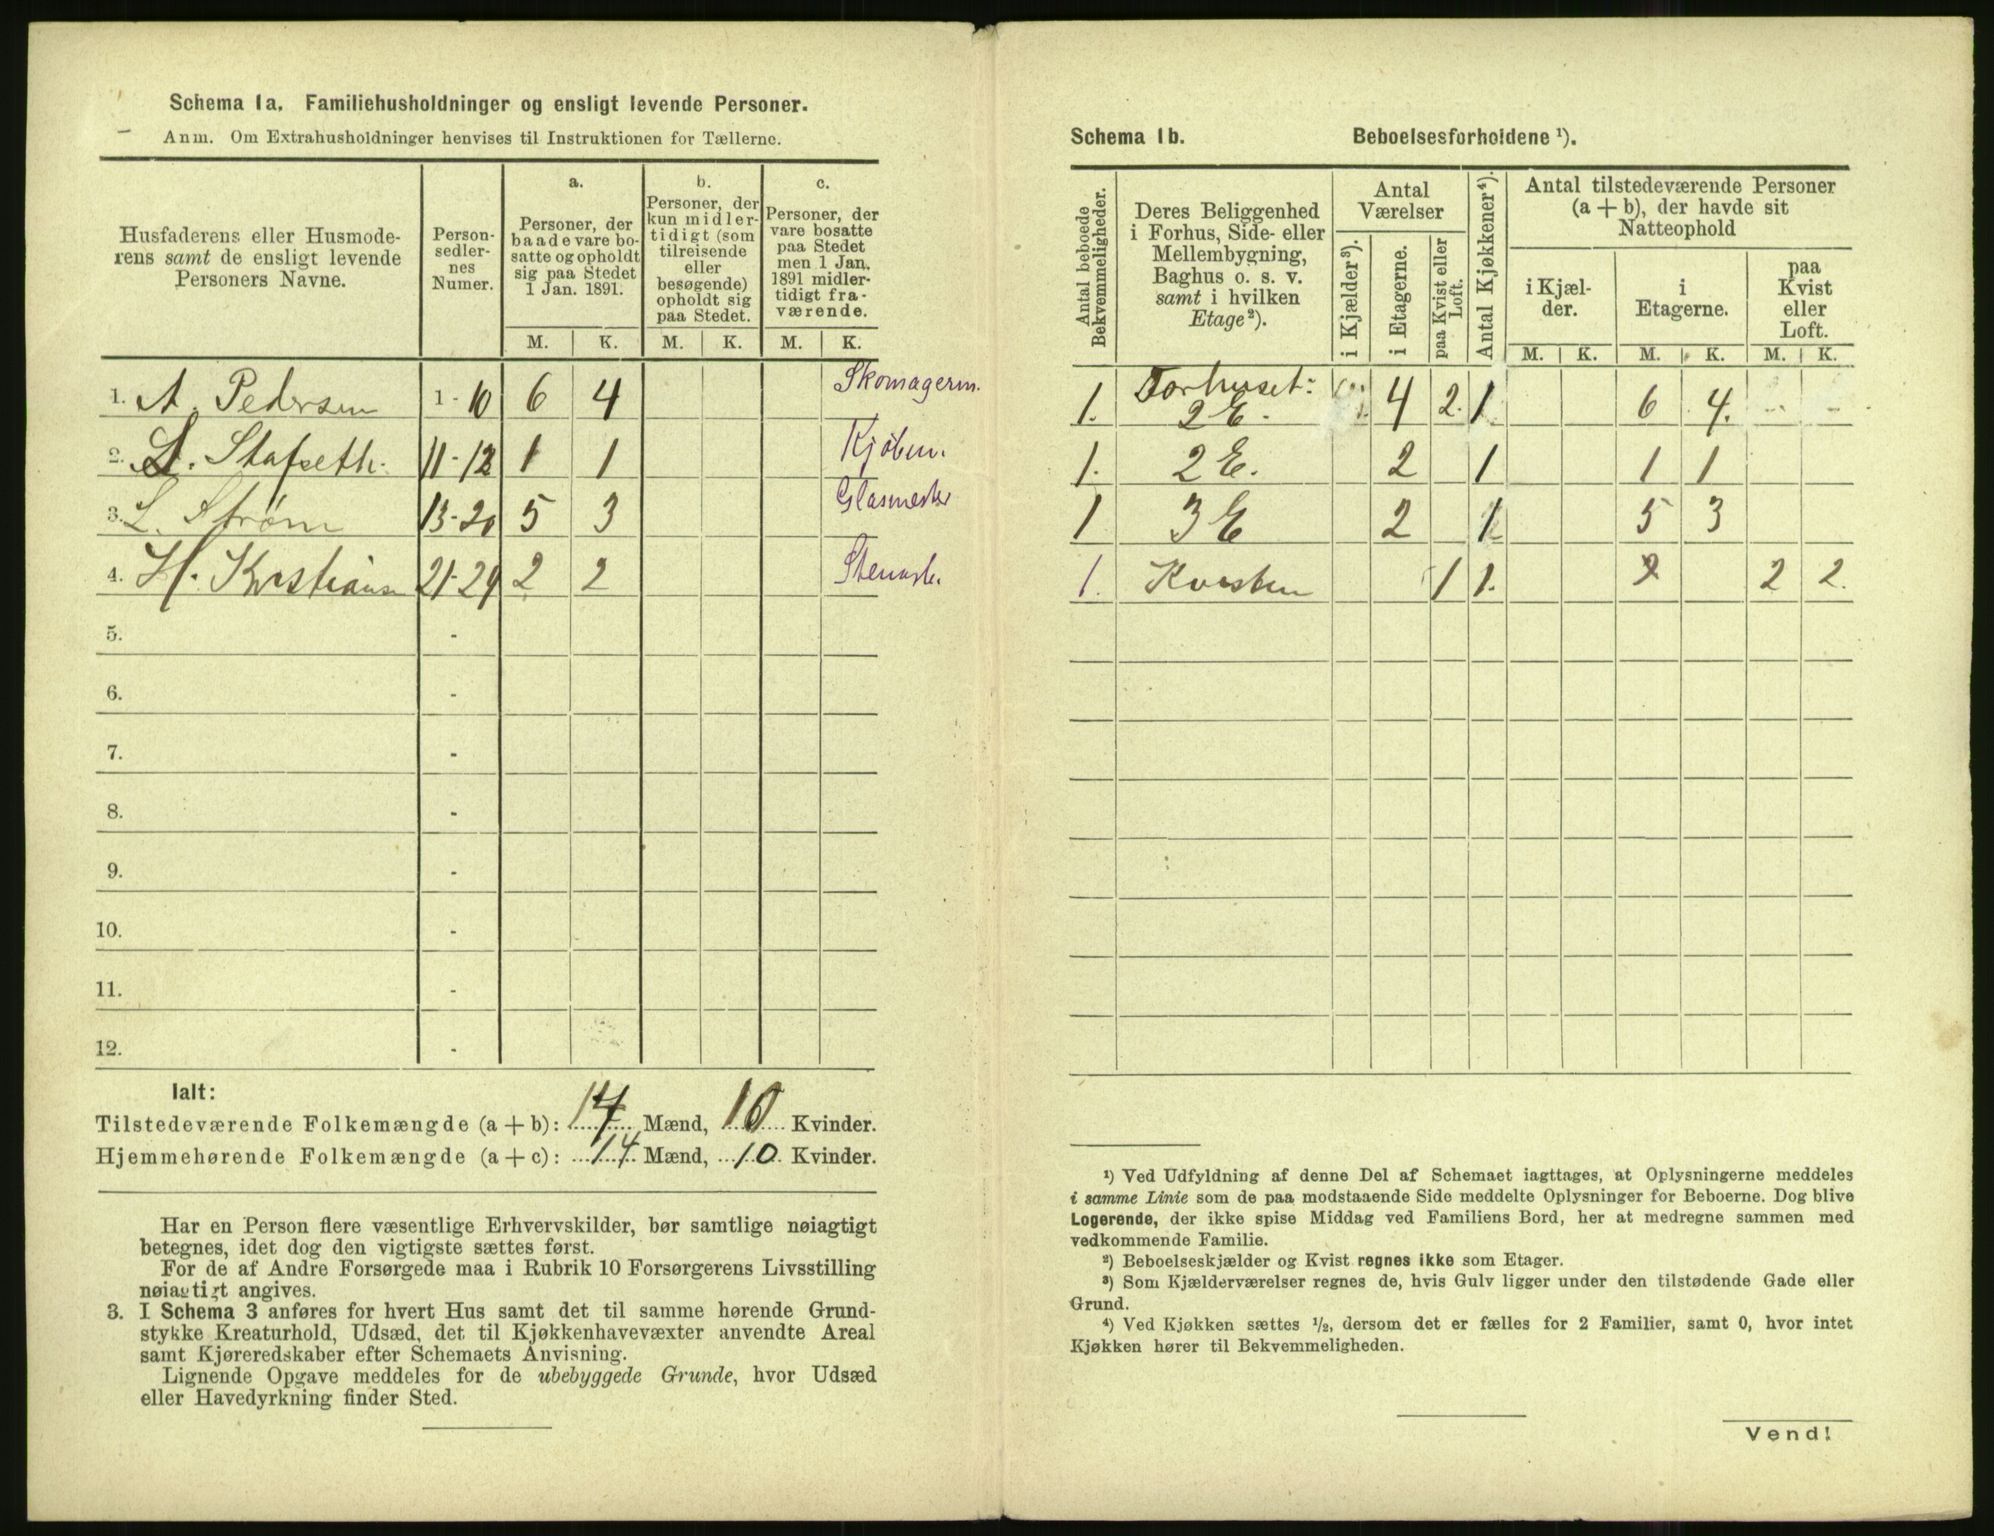 Schema 1a. Familiehusholdninger og ensligt levende Personer.
Anm. Om Extrahusholdninger henvises til Instruktionen for Tællerne.
Husfaderens eller Husmode-
rens samt de ensligt levende
Personers Navne.
Person-
sedler-
nes
Numer.
a.
Personer, der
baade vare bo-
satte og opholdt
sig paa Stedet
1 Jan. 1891.
b.
Personer, der
kun midler-
tidigt (som
tilreisende
eller
besøgende)
opholdt sig
paa Stedet.
c.
Personer, der
vare bosatte
paa Stedet
men 1 Jan.
1891 midler-
tidigt fra-
værende.
M. K. M. K. M. K.
1. A. Pedersen 1-10 6 4 Skomagerm.
2. Stafseth. 11-12 1 1 Kjøbm.
3. L. Strøm 13-20 5 3 Glasmester
4. H. Kristians 21-24 2 2
5. -
6. -
7. -
8. -
9. -
10. -
11. -
12. -
Ialt:
Tilstedeværende Folkemængde (a + b): 14 Mænd, 10 Kvinder.
Hjemmehørende Folkemængde (a + c): 14 Mænd, 10 Kvinder.
Har en Person flere væsentlige Erhvervskilder, bør samtlige nøiagtigt
betegnes, idet dog den vigtigste sættes først.
For de af Andre Forsørgede maa i Rubrik 10 Forsørgerens Livsstilling
nøiagtigt angives.
3. I Schema 3 anføres for hvert Hus samt det til samme hørende Grund-
stykke Kreaturhold, Udsæd, det til Kjøkkenhavevæxter anvendte Areal
samt Kjøreredskaber efter Schemaets Anvisning.
Lignende Opgave meddeles for de ubebyggede Grunde, hvor Udsæd
eller Havedyrkning finder Sted.
Schema 1b. Beboelsesforholdene ¹).
Antal beboede
Bekvemmeligheder.
Deres Beliggenhed
i Forhus, Side- eller
Mellembygning,
Baghus o. s. v.
samt i hvilken
Etage²).
Antal
Værelser
i Kjælder³).
i Etagerne.
paa Kvist eller
Loft.
Antal Kjøkkener⁴).
Antal tilstedeværende Personer
(a + b), der havde sit
Natteophold
i Kjæl-
der.
i
Etagerne.
paa
Kvist
eller
Loft.
M. K. M. K. M. K.
1. Forhuset: 2 E. 4 2. 1 6 4.
1. 2 E. 2 1 1 1
1 3 E 2 1 5 3
1. Kvisten 1 1. 2 2 2.
¹) Ved Udfyldning af denne Del af Schemaet iagttages, at Oplysningerne meddeles
i samme Linie som de paa modstaaende Side meddelte Oplysninger for Beboerne. Dog blive
Logerende, der ikke spise Middag ved Familiens Bord, her at medregne sammen med
vedkommende Familie.
²) Beboelseskjælder og Kvist regnes ikke som Etager.
³) Som Kjælderværelser regnes de, hvis Gulv ligger under den tilstødende Gade eller
Grund.
⁴) Ved Kjøkken sættes ½, dersom det er fælles for 2 Familier, samt 0, hvor intet
Kjøkken hører til Bekvemmeligheden.
Vend!